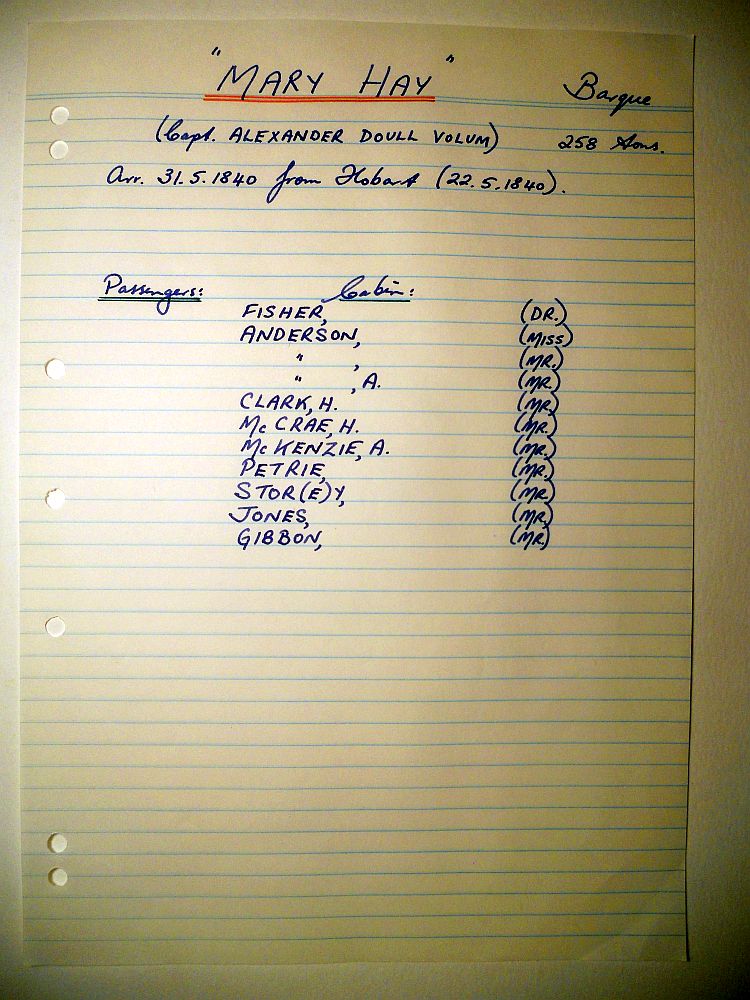 "MARY HAY" Barque
(Capt. ALEXANDER DOULL VOLUM) 258 tons.
Arr. 31.5.1840 from Hobart (22.5.1840).
Passengers: Cabin:
FISHER, (DR.)
ANDERSON, (MISS)
" , (MR.)
" , A. (MR.)
CLARK, H. (MR.)
McCRAE, H. (MR.)
McKENZIE, A. (MR.)
PETRIE, (MR.)
STOR(E)Y, (MR.)
JONES, (MR.)
GIBBON, (MR.)